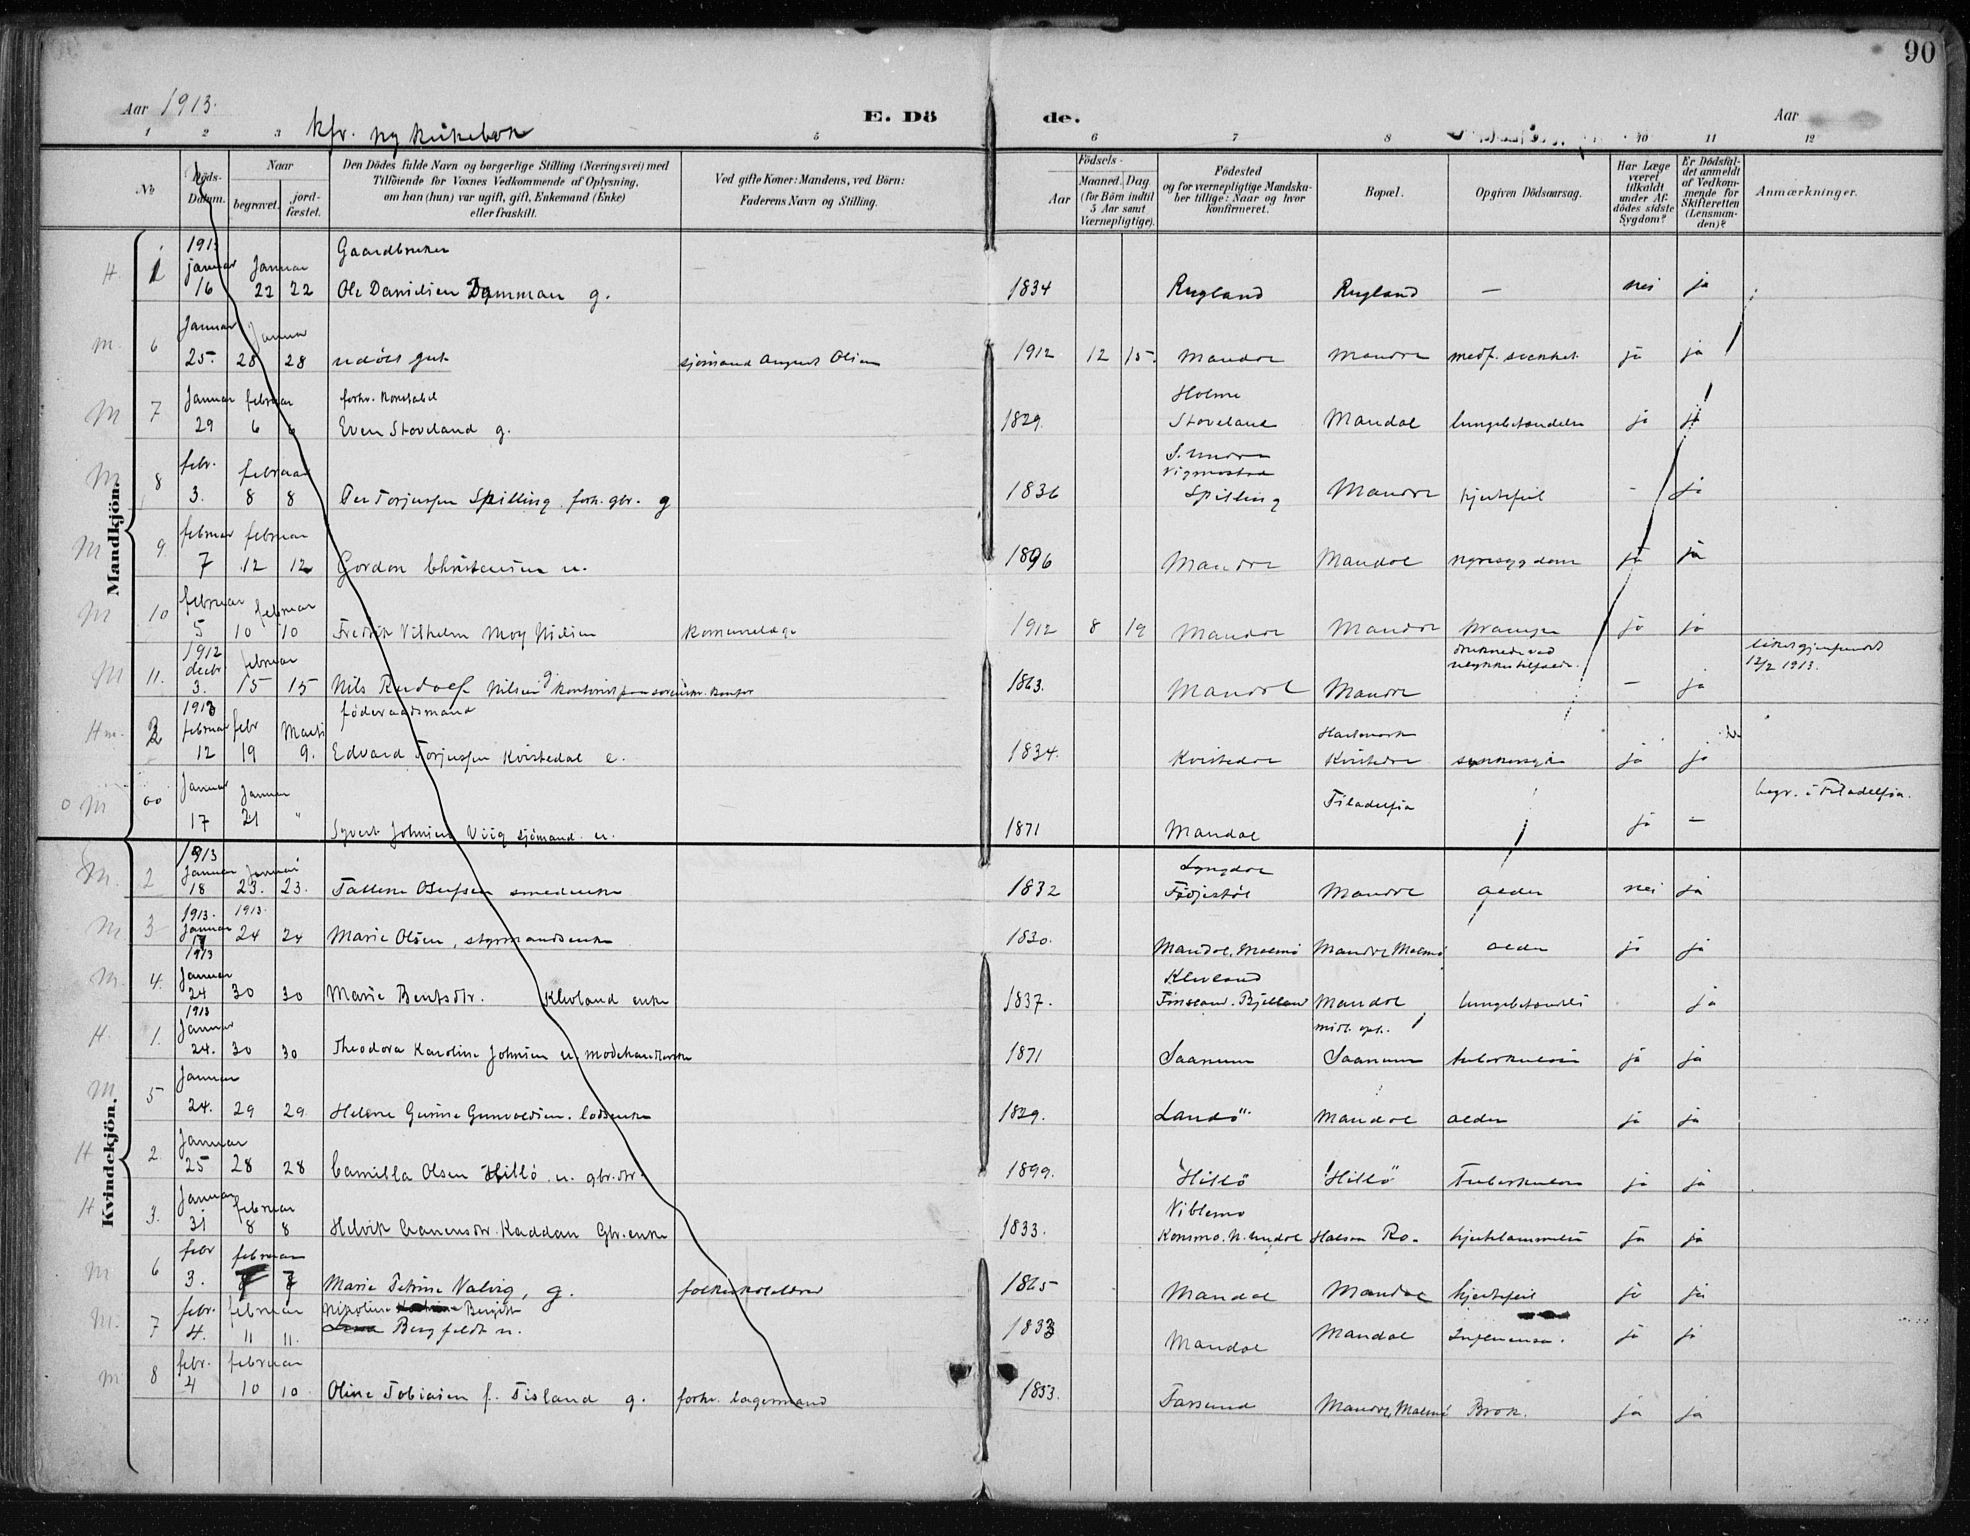 90
Aar 1913.
E. Döde.
Aar
kfr. ny kirkebok
1 2 3 5 6 7 8 10 11 12
No
Döds-Datum.
Naar
begravet.
jordfæstet.
Den Dödes fulde Navn og borgerlige Stilling (Næringsvei) med
Tilföiende for Voxnes Vedkommende af Oplysning,
om han (hun) var ugift, gift, Enkemand (Enke)
eller fraskilt.
Ved gifte Koner: Mandens, ved Börn:
Faderens Navn og Stilling.
Födsels-
Aar
Maaned. Dag
(for Börn indtil
5 Aar samt
Værnepligtige).
Födested
og for værnepligtige Mandska-
ber tillige: Naar og hvor
konfirmeret.
Bopæl.
Opgiven Dödsaarsag.
Har Læge
været
tilkaldt
under Af-
dödes sidste
Sygdom?
Er Dödsfal-
det anmeldt
af Vedkom-
mende for
Skifteretten
(Lensman-
den)?
Anmærkninger.
Mandkjön.
1913 Gaardbruker
H. 1 januar 16 Januar 22 22 Ole Danielsen g. 1834 Rugland Rugland — nei ja
M. 6 Januar 25. Januar 28 28 udöbt gut sjömand August Olsen 1912 12 15. Mandal Mandal medf. svakhet ja ja
forhv. Konstabel Holme
M 7 Januar 29 februar 6 6 Even Stoveland g. 1829. Stoveland Mandal lungebetændelse ja ja
S. Undal
Vigmostad
M 8 febr. 3. februar 8 8 Per Torjussen Spilling forh. gbr. g 1836 Spilling Mandal hjertefeil - ja
M 9. februar 7 februar 12 12 Gordon Christensen u. 1896 Mandal Mandal nyresygdom ja ja
M 10 februar 5 februar 10 10 Fredrik Vilhelm Moy Nielsen 1912 8 19 Mandal Mandal krampe ja ja
druknede ved
ulykkestilfælde. liket gjenfundet
12/2 1913.
M 11. 1912 decbr. 3. februar 15 15 Nils Rudolf Nilsen g 1863. Mandal Mandal — ja
1913 föderaadsmand
Hm. 2 februar 12 febr 19 Marts 9. Edvard Torjussen Kvistedal e. 1834. Kvistedal Kvistedal ja ja
Filadelfia begr. i Filadelfia.
M 00 Januar 17 Januar 21 " Syvert Johnsen Viig sjömand u. 1871 Mandal ja —
Kvindekjön.
1913 Lyngdal
M. 2 Januar 18 Januar 23. 23. Tallene Olufsen smedenke 1832 Mandal alder nei ja
M 3 1913. Januar 17 1913. 24 24 Marie Olsen, styrmandsenke 1830. Mandal, Malmö Mandal, Malmö alder ja ja
1913 Kleveland
M. 4. Januar 24 30 30 Marie Bentsdtr. Klevland enke 1837. Finsland. Bjelland Mandal lungebetændelse ja
1913
H. 1. Januar 24. 30 30 Theodora Karoline Johnsen u. modehandlerske 1871 Saanum Saanum tuberkulose ja ja
M. 5 Januar 24. 29 29. Helene Gurine Gunvaldsen. losenke 1829. Landö Mandal alder ja ja
H 2. Januar 25 28 28 Camilla Olsen Hillö u. gbr.dtr. 1899. Hillö Hillö Tuberkulose ja ja
Viblemo
H 3. Januar 31 februar 8 8 Helvik Kaddan Gbr.enke 1833. Konsmo. N. Undal ja ja
M 6 febr 3. februar 7 7 Marie Petrine Valvig, g. folkeskolelærer 1865 Mandal Mandal hjertefeil ja ja
Nikoline Bergitte
M. 7 febr. 4. februar 11 11. Bergfeldt u. 1833 Mandal Mandal Influensa. ja ja
M 8 febr. 4 februar 10 10. Oline Tobiasen f. Tisland g. forhv. lagermand 1853. Farsund Mandal, Malmö Brok. ja ja